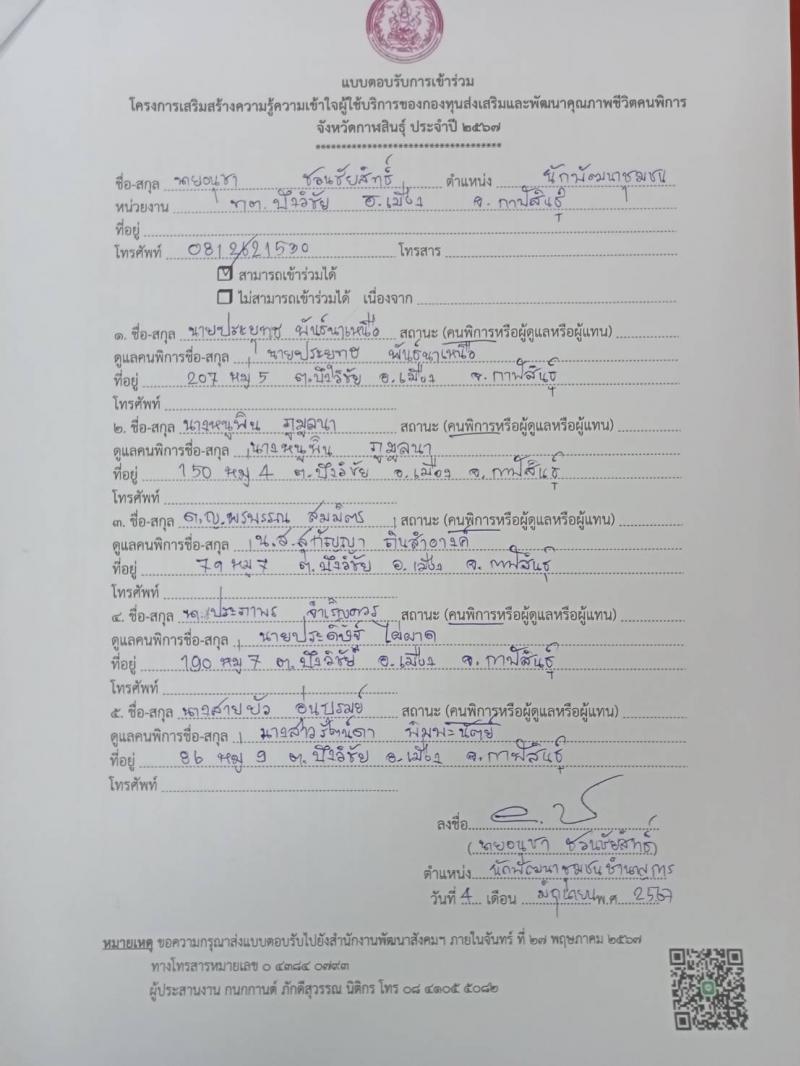 แบบตอบรับการเข้าร่วม
โครงการเสริมสร้างความรู้ความเข้าใจผู้ใช้บริการของกองทุนส่งเสริมและพัฒนาคุณภาพชีวิตคนพิการ
จังหวัดกาฬสินธุ์ ประจำปี ๒๕๖๗
ชื่อ-สกุล นายอนุชา ชอนชัยสิทธิ์ ตำแหน่ง นักพัฒนาชุมชน
หน่วยงาน ทต. บึงวิชัย อ.เมือง จ.กาฬสินธุ์
ที่อยู่
โทรศัพท์ โทรสาร
สามารถเข้าร่วมได้
ไม่สามารถเข้าร่วมได้ เนื่องจาก
๑. ชื่อ-สกุล นายประยุทธ พันธ์นาเหนือ สถานะ (คนพิการหรือผู้ดูแลหรือผู้แทน)
ดูแลคนพิการชื่อ-สกุล นายประยุทธ พันธ์นาเหนือ
ที่อยู่ 207 หมู่ 5 ต.บึงวิชัย อ.เมือง จ.กาฬสินธุ์
โทรศัพท์
๒. ชื่อ-สกุล นางหนูพิน ภูมูลนา สถานะ (คนพิการหรือผู้ดูแลหรือผู้แทน)
ดูแลคนพิการชื่อ-สกุล นางหนูพิน ภูมูลนา
ที่อยู่ 150 หมู่ 4 ต.บึงวิชัย อ.เมือง จ.กาฬสินธุ์
โทรศัพท์
๓. ชื่อ-สกุล ด.ญ.พรพรรณ สมมิตร สถานะ (คนพิการหรือผู้ดูแลหรือผู้แทน)
ดูแลคนพิการชื่อ-สกุล น.ส.สุกัญญา ถิ่นสำอางค์
ที่อยู่ 79 หมู่ 7 ต.บึงวิชัย อ.เมือง จ.กาฬสินธุ์
โทรศัพท์
๔. ชื่อ-สกุล สถานะ (คนพิการหรือผู้ดูแลหรือผู้แทน)
ดูแลคนพิการชื่อ-สกุล นายประดิษฐ์ ไผ่ผาด
ที่อยู่ 190 หมู่ 7 ต.บึงวิชัย อ.เมือง จ.กาฬสินธุ์
โทรศัพท์
๕. ชื่อ-สกุล นางสายบัว อุ่นปรมย์ สถานะ (คนพิการหรือผู้ดูแลหรือผู้แทน)
ดูแลคนพิการชื่อ-สกุล นางสาวรัตน์ดา
ที่อยู่ 86 หมู่ 9 ต.บึงวิชัย อ.เมือง จ.กาฬสินธุ์
โทรศัพท์
ลงชื่อ
(นายอนุชา ชอนชัยสิทธิ์)
ตำแหน่ง นักพัฒนาชุมชนชำนาญการ
วันที่ 4 เดือน มิถุนายน พ.ศ. 2567
หมายเหตุ ขอความกรุณาส่งแบบตอบรับไปยังสำนักงานพัฒนาสังคมฯ ภายในจันทร์ ที่ ๒๗ พฤษภาคม ๒๕๖๗
ทางโทรสารหมายเลข ๐ ๔๓๘๔ ๐๗๙๓
ผู้ประสานงาน กนกกานต์ ภักดีสุวรรณ นิติกร โทร ๐๘ ๔๑๐๕ ๕๐๘๒